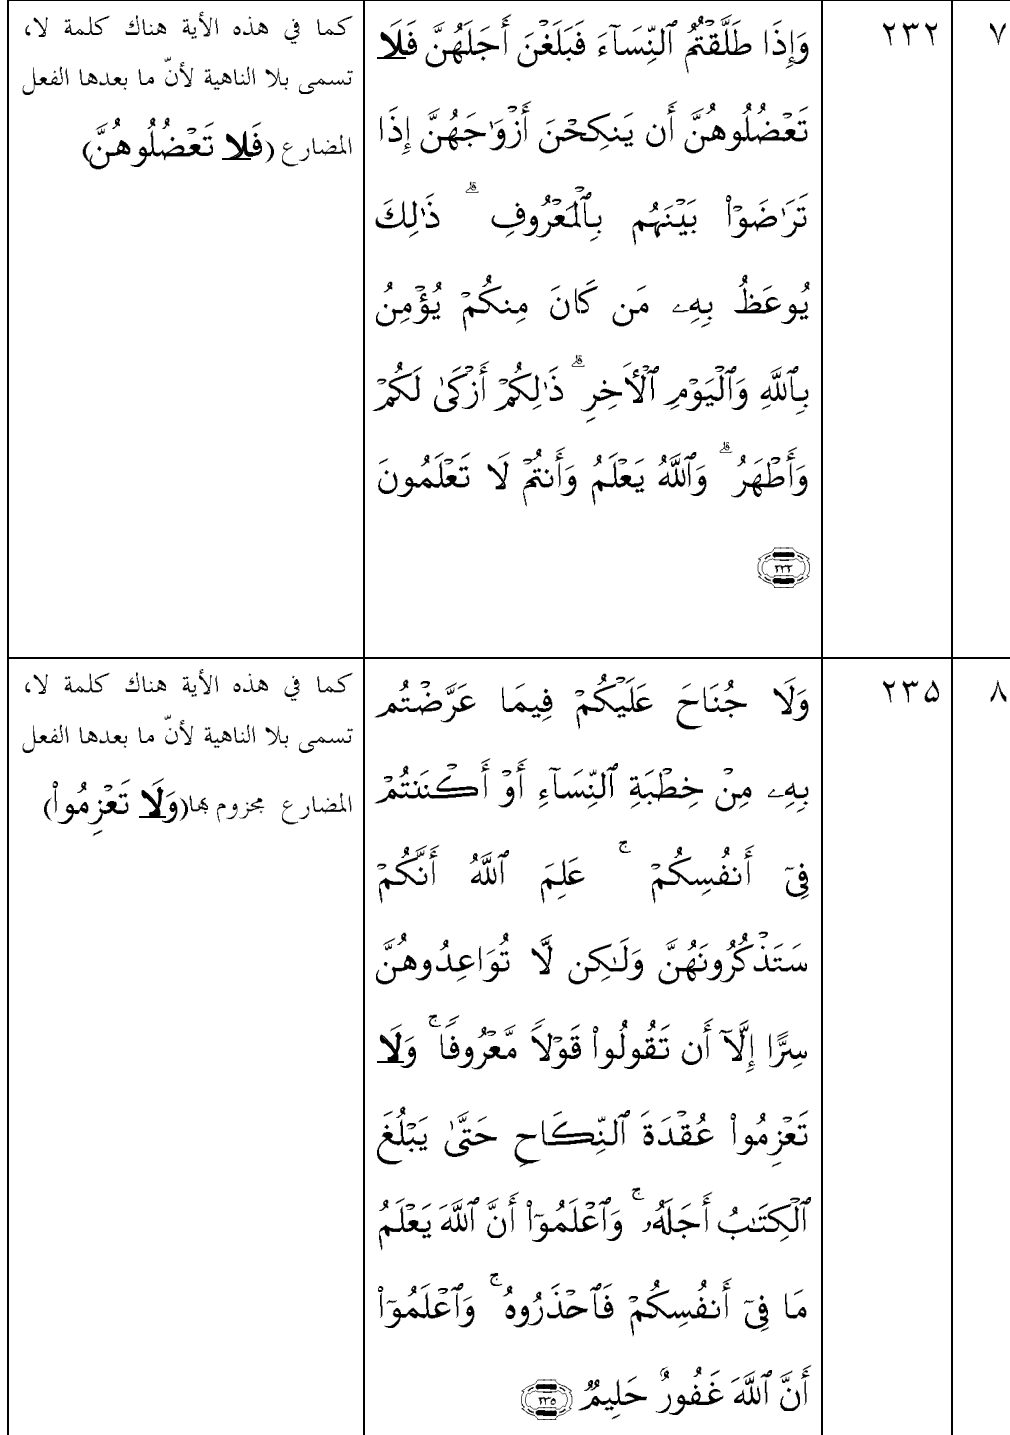 ٧
٢٣٢
وَإِذَا طَلَّقْتُمُ ٱلنِّسَآءَ فَبَلَغْنَ أَجَلَهُنَّ فَلَا
تَعْضُلُوهُنَّ أَن يَنكِحْنَ أَزْوَٰجَهُنَّ إِذَا
تَرَٰضَوْا۟ بَيْنَهُم بِٱلْمَعْرُوفِ ۗ ذَٰلِكَ
يُوعَظُ بِهِۦ مَن كَانَ مِنكُمْ يُؤْمِنُ
بِٱللَّهِ وَٱلْيَوْمِ ٱلْأَخِرِ ۗ ذَٰلِكُمْ أَزْكَىٰ لَكُمْ
وَأَطْهَرُ ۗ وَٱللَّهُ يَعْلَمُ وَأَنتُمْ لَا تَعْلَمُونَ
٢٣٢
كما في هذه الأية هناك كلمة لا،
تسمى بلا الناهية لأنّ ما بعدها الفعل
المضارع (فَلَا تَعْضُلُوهُنَّ)
٨
٢٣٥
وَلَا جُنَاحَ عَلَيْكُمْ فِيمَا عَرَّضْتُم
بِهِۦ مِنْ خِطْبَةِ ٱلنِّسَآءِ أَوْ أَكْنَنتُمْ
فِىٓ أَنفُسِكُمْ ۚ عَلِمَ ٱللَّهُ أَنَّكُمْ
سَتَذْكُرُونَهُنَّ وَلَٰكِن لَّا تُوَاعِدُوهُنَّ
سِرًّا إِلَّآ أَن تَقُولُوا۟ قَوْلًا مَّعْرُوفًا ۚ وَلَا
تَعْزِمُوا۟ عُقْدَةَ ٱلنِّكَاحِ حَتَّىٰ يَبْلُغَ
ٱلْكِتَٰبُ أَجَلَهُۥ ۚ وَٱعْلَمُوٓا۟ أَنَّ ٱللَّهَ يَعْلَمُ
مَا فِىٓ أَنفُسِكُمْ فَٱحْذَرُوهُ ۚ وَٱعْلَمُوٓا۟
أَنَّ ٱللَّهَ غَفُورٌ حَلِيمٌ ٢٣٥
كما في هذه الأية هناك كلمة لا،
تسمى بلا الناهية لأنّ ما بعدها الفعل
المضارع مجزوم بها(وَلَا تَعْزِمُوا۟)